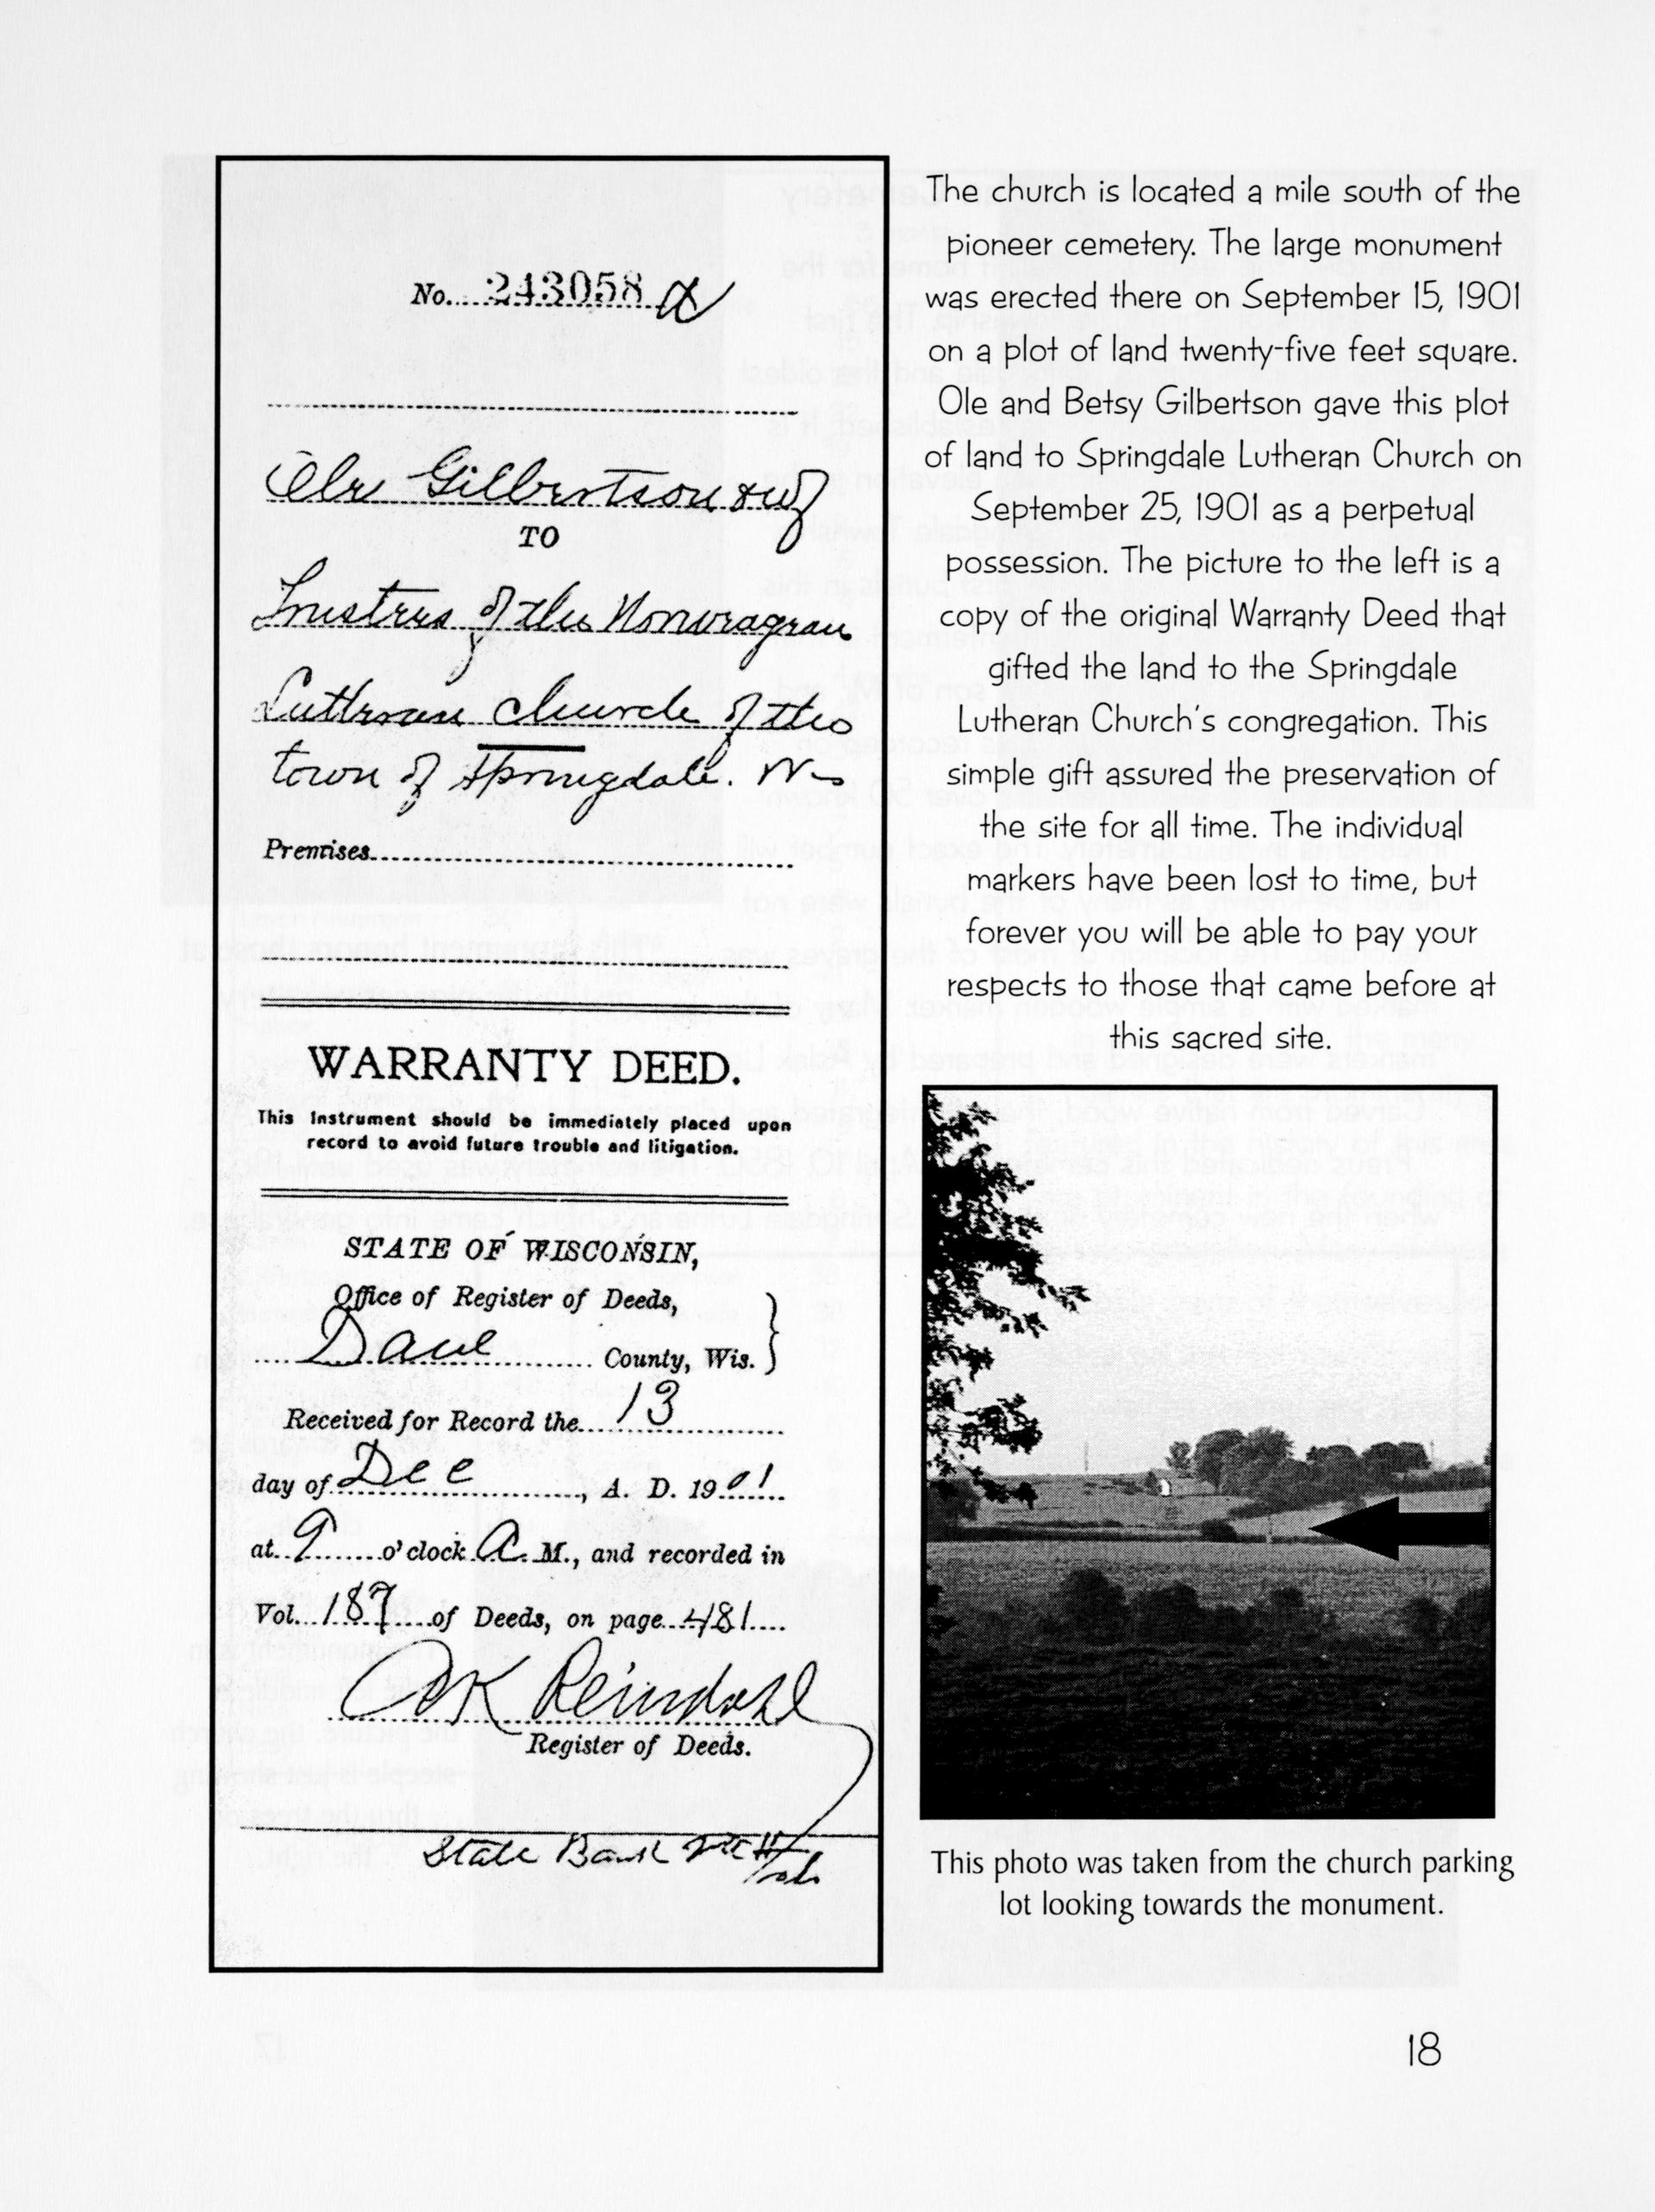 No. 243058 a
Ole Gilbertson & wf
TO
Trustees of the Norwegian
Lutheran Church of the
town of Springdale. Wis
Premises
WARRANTY DEED.
This Instrument should be immediately placed upon
record to avoid future trouble and litigation.
STATE OF WISCONSIN,
Office of Register of Deeds,
Dane County, Wis.
Received for Record the 13
day of Dec, A. D. 1901
at 9 o'clock A. M., and recorded in
Vol. 187 of Deeds, on page 481
Reindahl
Register of Deeds.
State Bank Mt Horeb
The church is located a mile south of the
pioneer cemetery. The large monument
was erected there on September 15, 1901
on a plot of land twenty-five feet square.
Ole and Betsy Gilbertson gave this plot
of land to Springdale Lutheran Church on
September 25, 1901 as a perpetual
possession. The picture to the left is a
copy of the original Warranty Deed that
gifted the land to the Springdale
Lutheran Church's congregation. This
simple gift assured the preservation of
the site for all time. The individual
markers have been lost to time, but
forever you will be able to pay your
respects to those that came before at
this sacred site.
This photo was taken from the church parking
lot looking towards the monument.
18